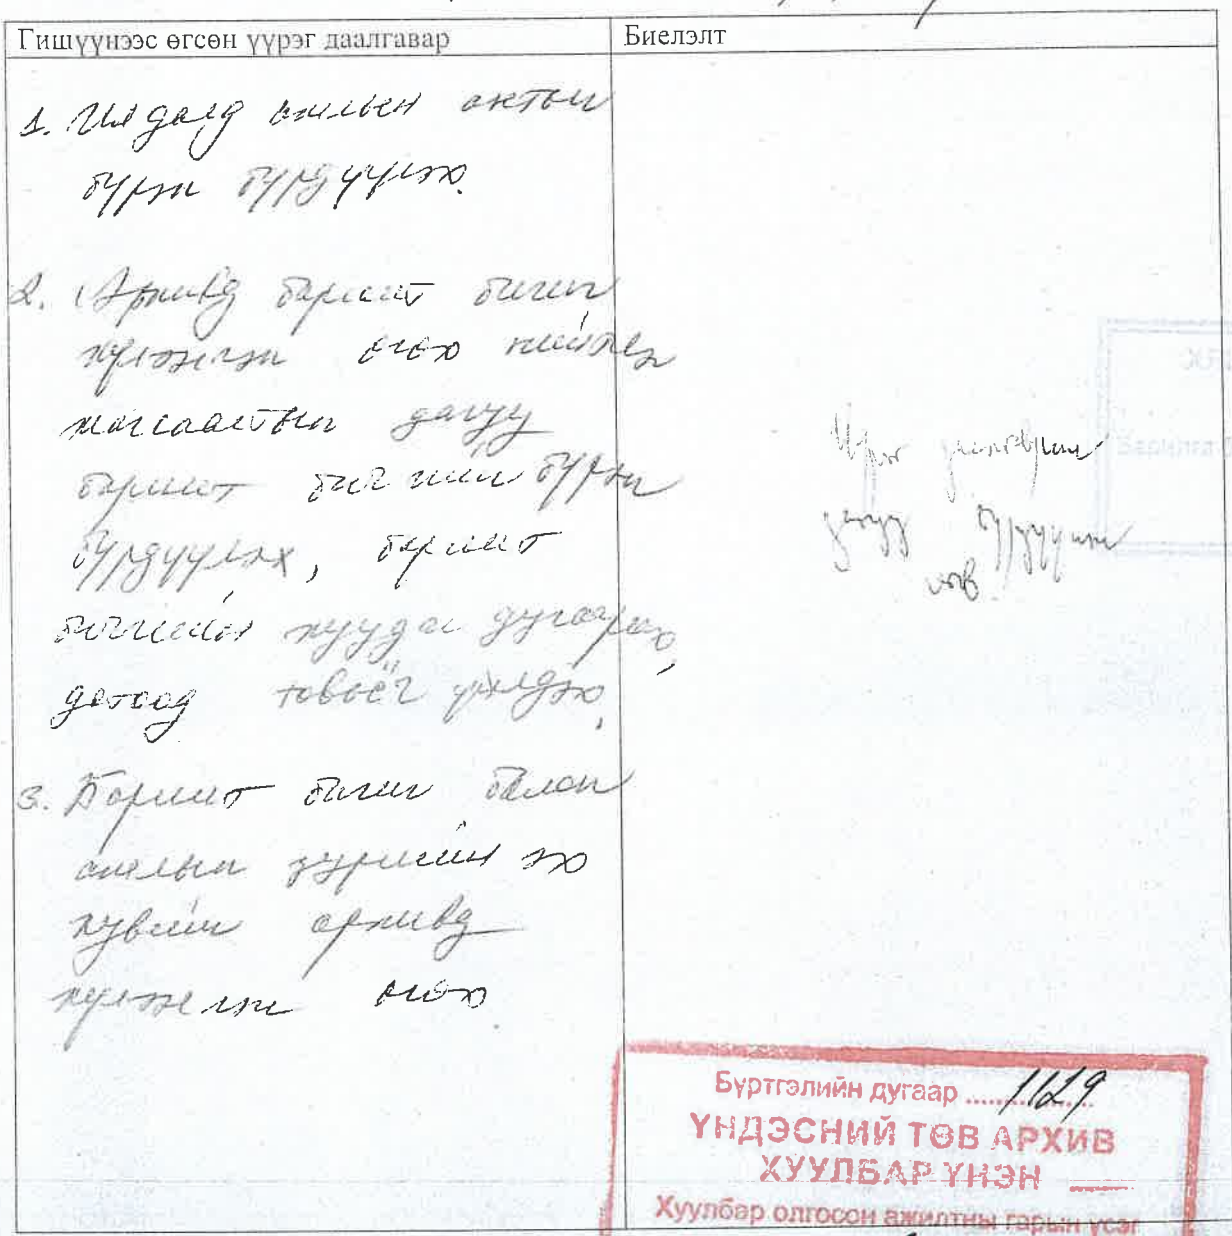 Гишүүнээс өгсөн үүрэг даалгавар
Биелэлт
1. Ил далд ажлын актыг
бүрэн бүрдүүлэх.
2. Архивд баримт бичиг
хүлээлгэн өгөх нийтлэг
жагсаалтын дагуу
баримт бичгийг бүрэн
бүрдүүлэх, баримт
бичгийн хуудас дугаарлах,
дотоод товьёг үйлдэх.
3. Баримт бичиг болон
ажлын зургийн эх
хувийг архивд
хүлээлгэж өгөх
Үүрэг даалгаврын
дагуу бүрдүүлж
өгөв.
Бүртгэлийн дугаар ..... 1129
ҮНДЭСНИЙ ТӨВ АРХИВ
ХУУЛБАР ҮНЭН
Хуулбар олгосон ажилтны гарын үсэг